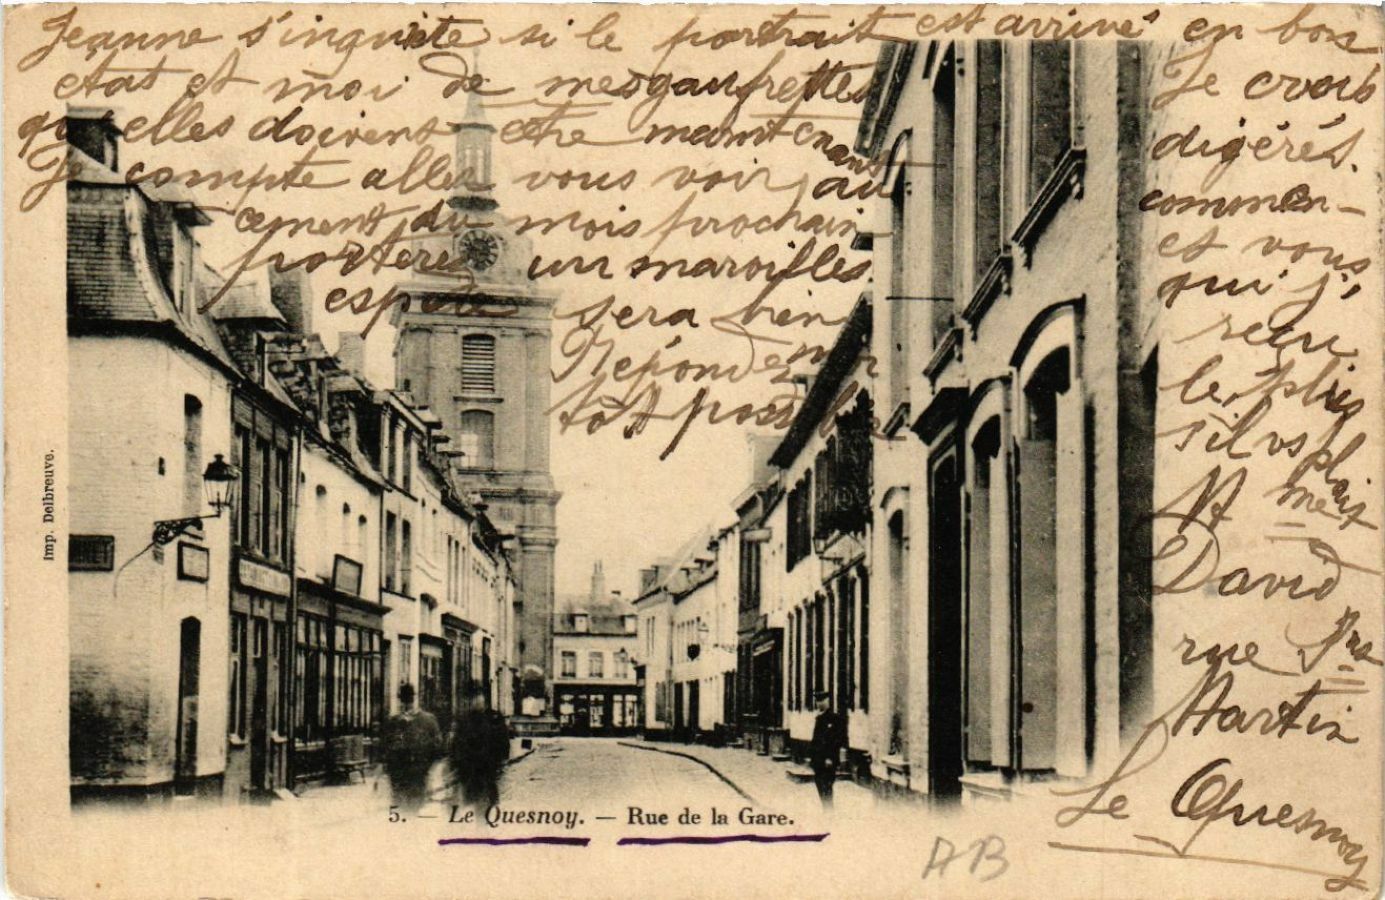 Jeanne s'inquiete si le portrait est arrivé en bon
etat et moi de mes gaufrettes Je crois
qu'elles doivent etre maintenant digérés.
Je compte aller vous voir, au commen-
cement du mois prochain et vous
porterez un maroilles qui j'
espere sera bien recu
Répondez moi le plus
tôt possible s'il vs plait
M met
David
rue Jas
Martin
Le Quesnoy
5. — Le Quesnoy. — Rue de la Gare.
Imp. Delbreuve.
AB